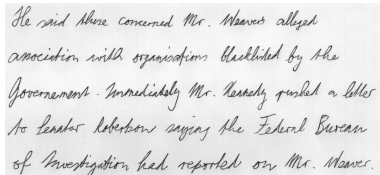 He said these concerned Mr. Weavers alleged
association with organisations blacklisted by the
Governement. Immediately Mr. Kennedy rushed a letter
to Senator Robertson saying the Federal Bureau
of Investigation had reported on Mr. Weaver.